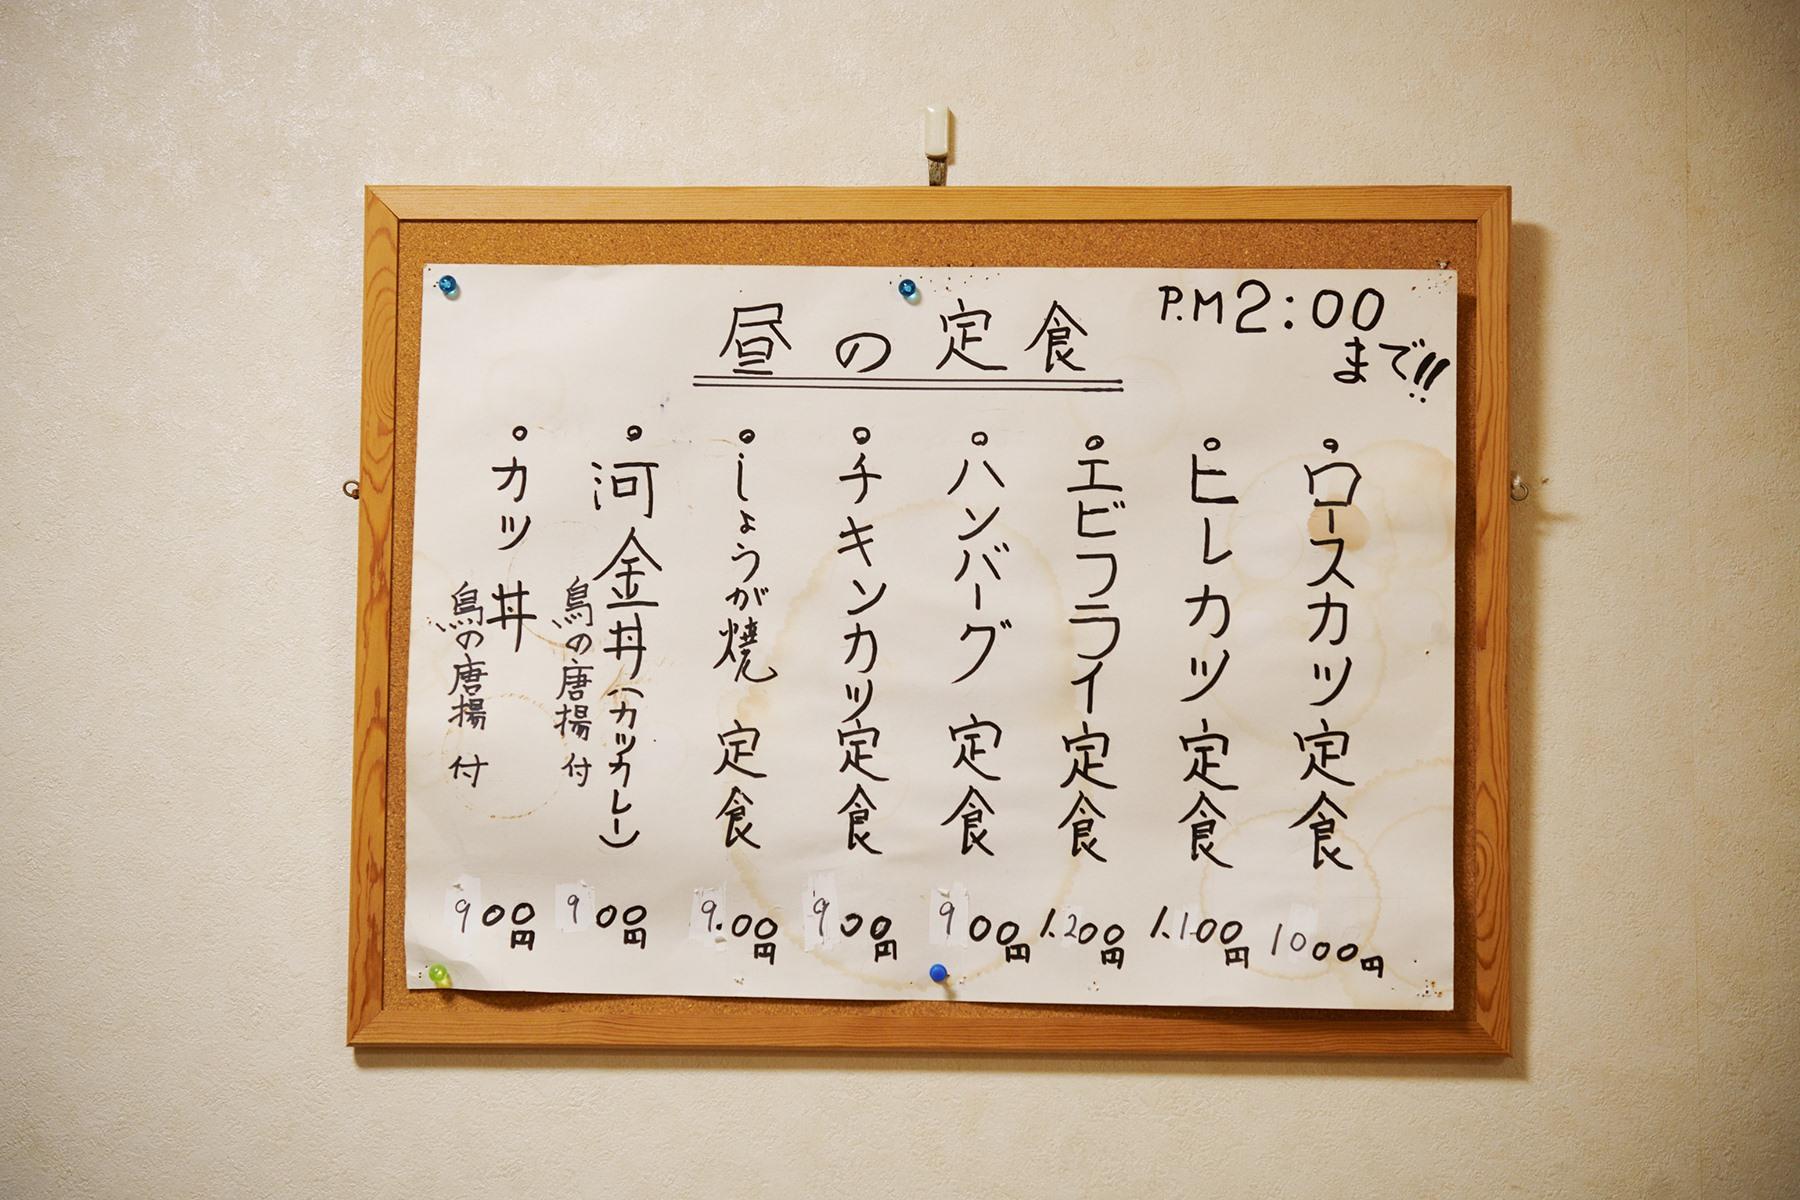 昼の定食
P.M2:00
まで!!
・ロースカツ定食 1000円
・ヒレカツ定食 1.100円
・エビフライ定食 1.200円
・ハンバーグ定食 900円
・チキンカツ定食 900円
・しょうが焼定食 9.00円
・河金丼(カツカレー)
鳥の唐揚付 900円
・カツ丼
鳥の唐揚付 900円